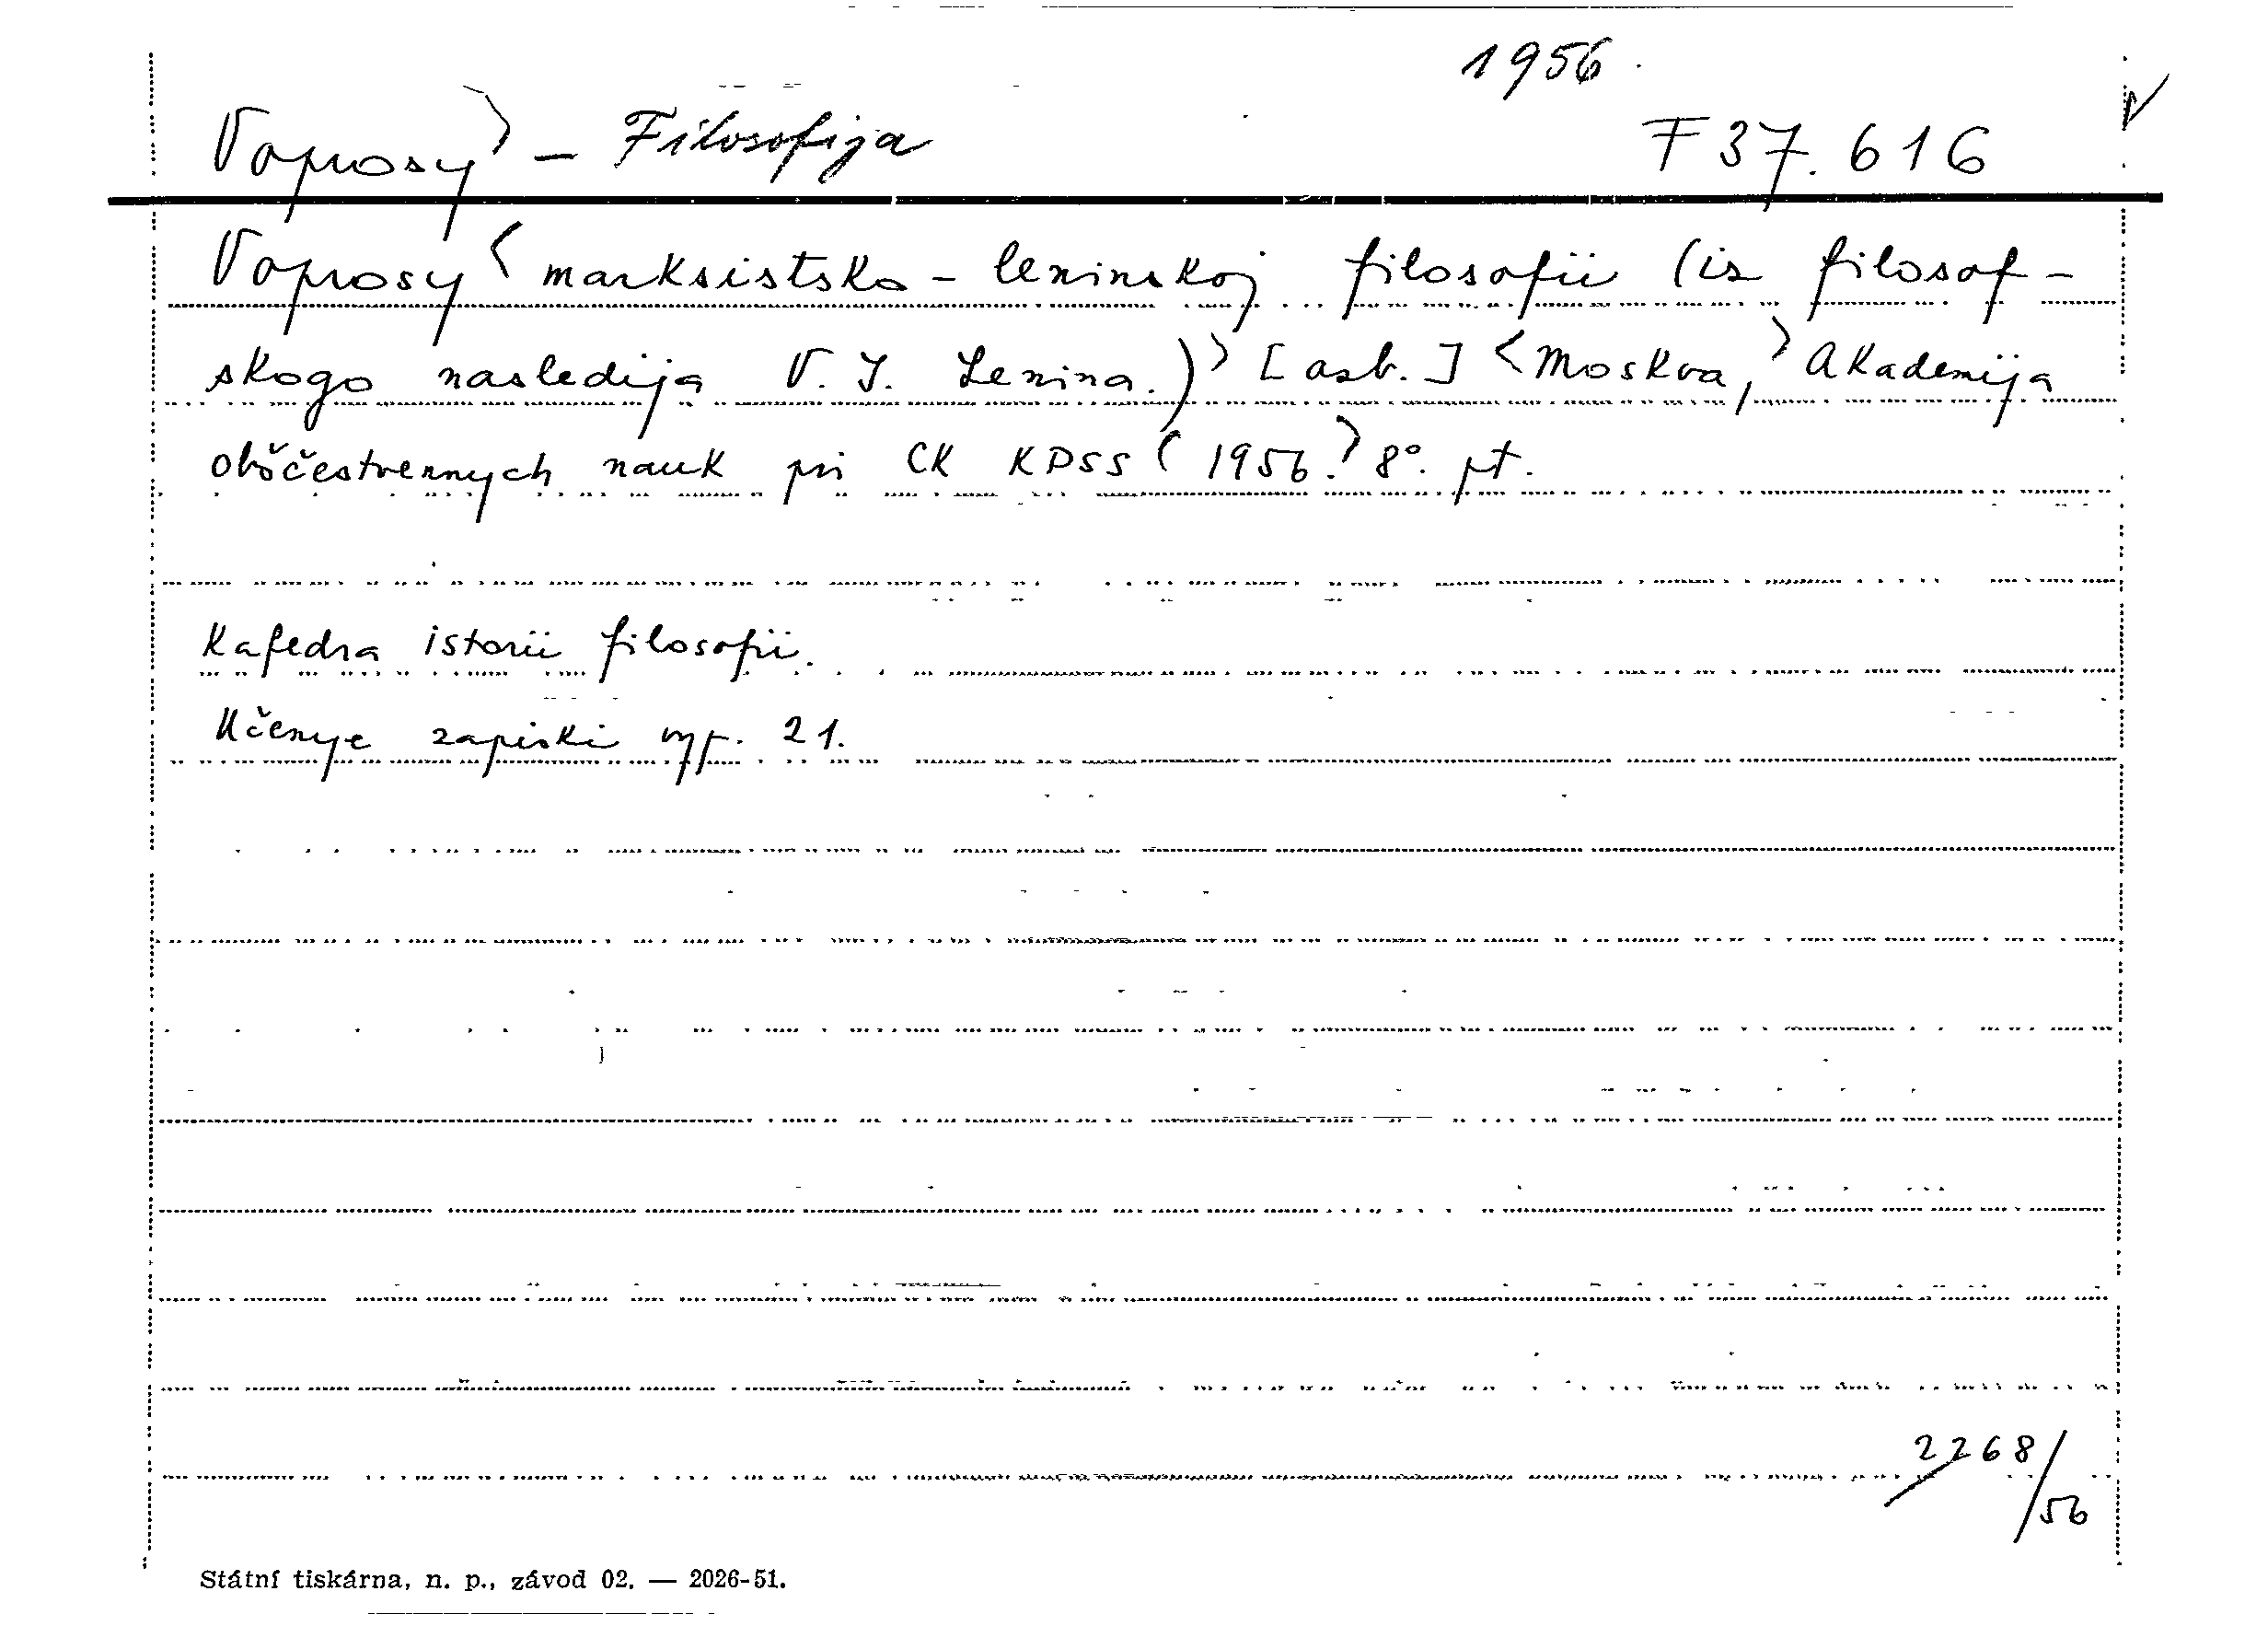 1956.
Voprosy> – Filosofija F 37.616
Voprosy < marksistsko – leninskoj filosofii (iz filosof –
skogo nasledija V. I. Lenina.)> [asb.] <Moskva,> Akademija
obščestvennych nauk pri CK KPSS < 1956.> 8°. pt.
Kafedra istorii filosofii.
Učenye zapiski vyp. 21.
2268/56
Státní tiskárna, n. p., závod 02. — 2026-51.